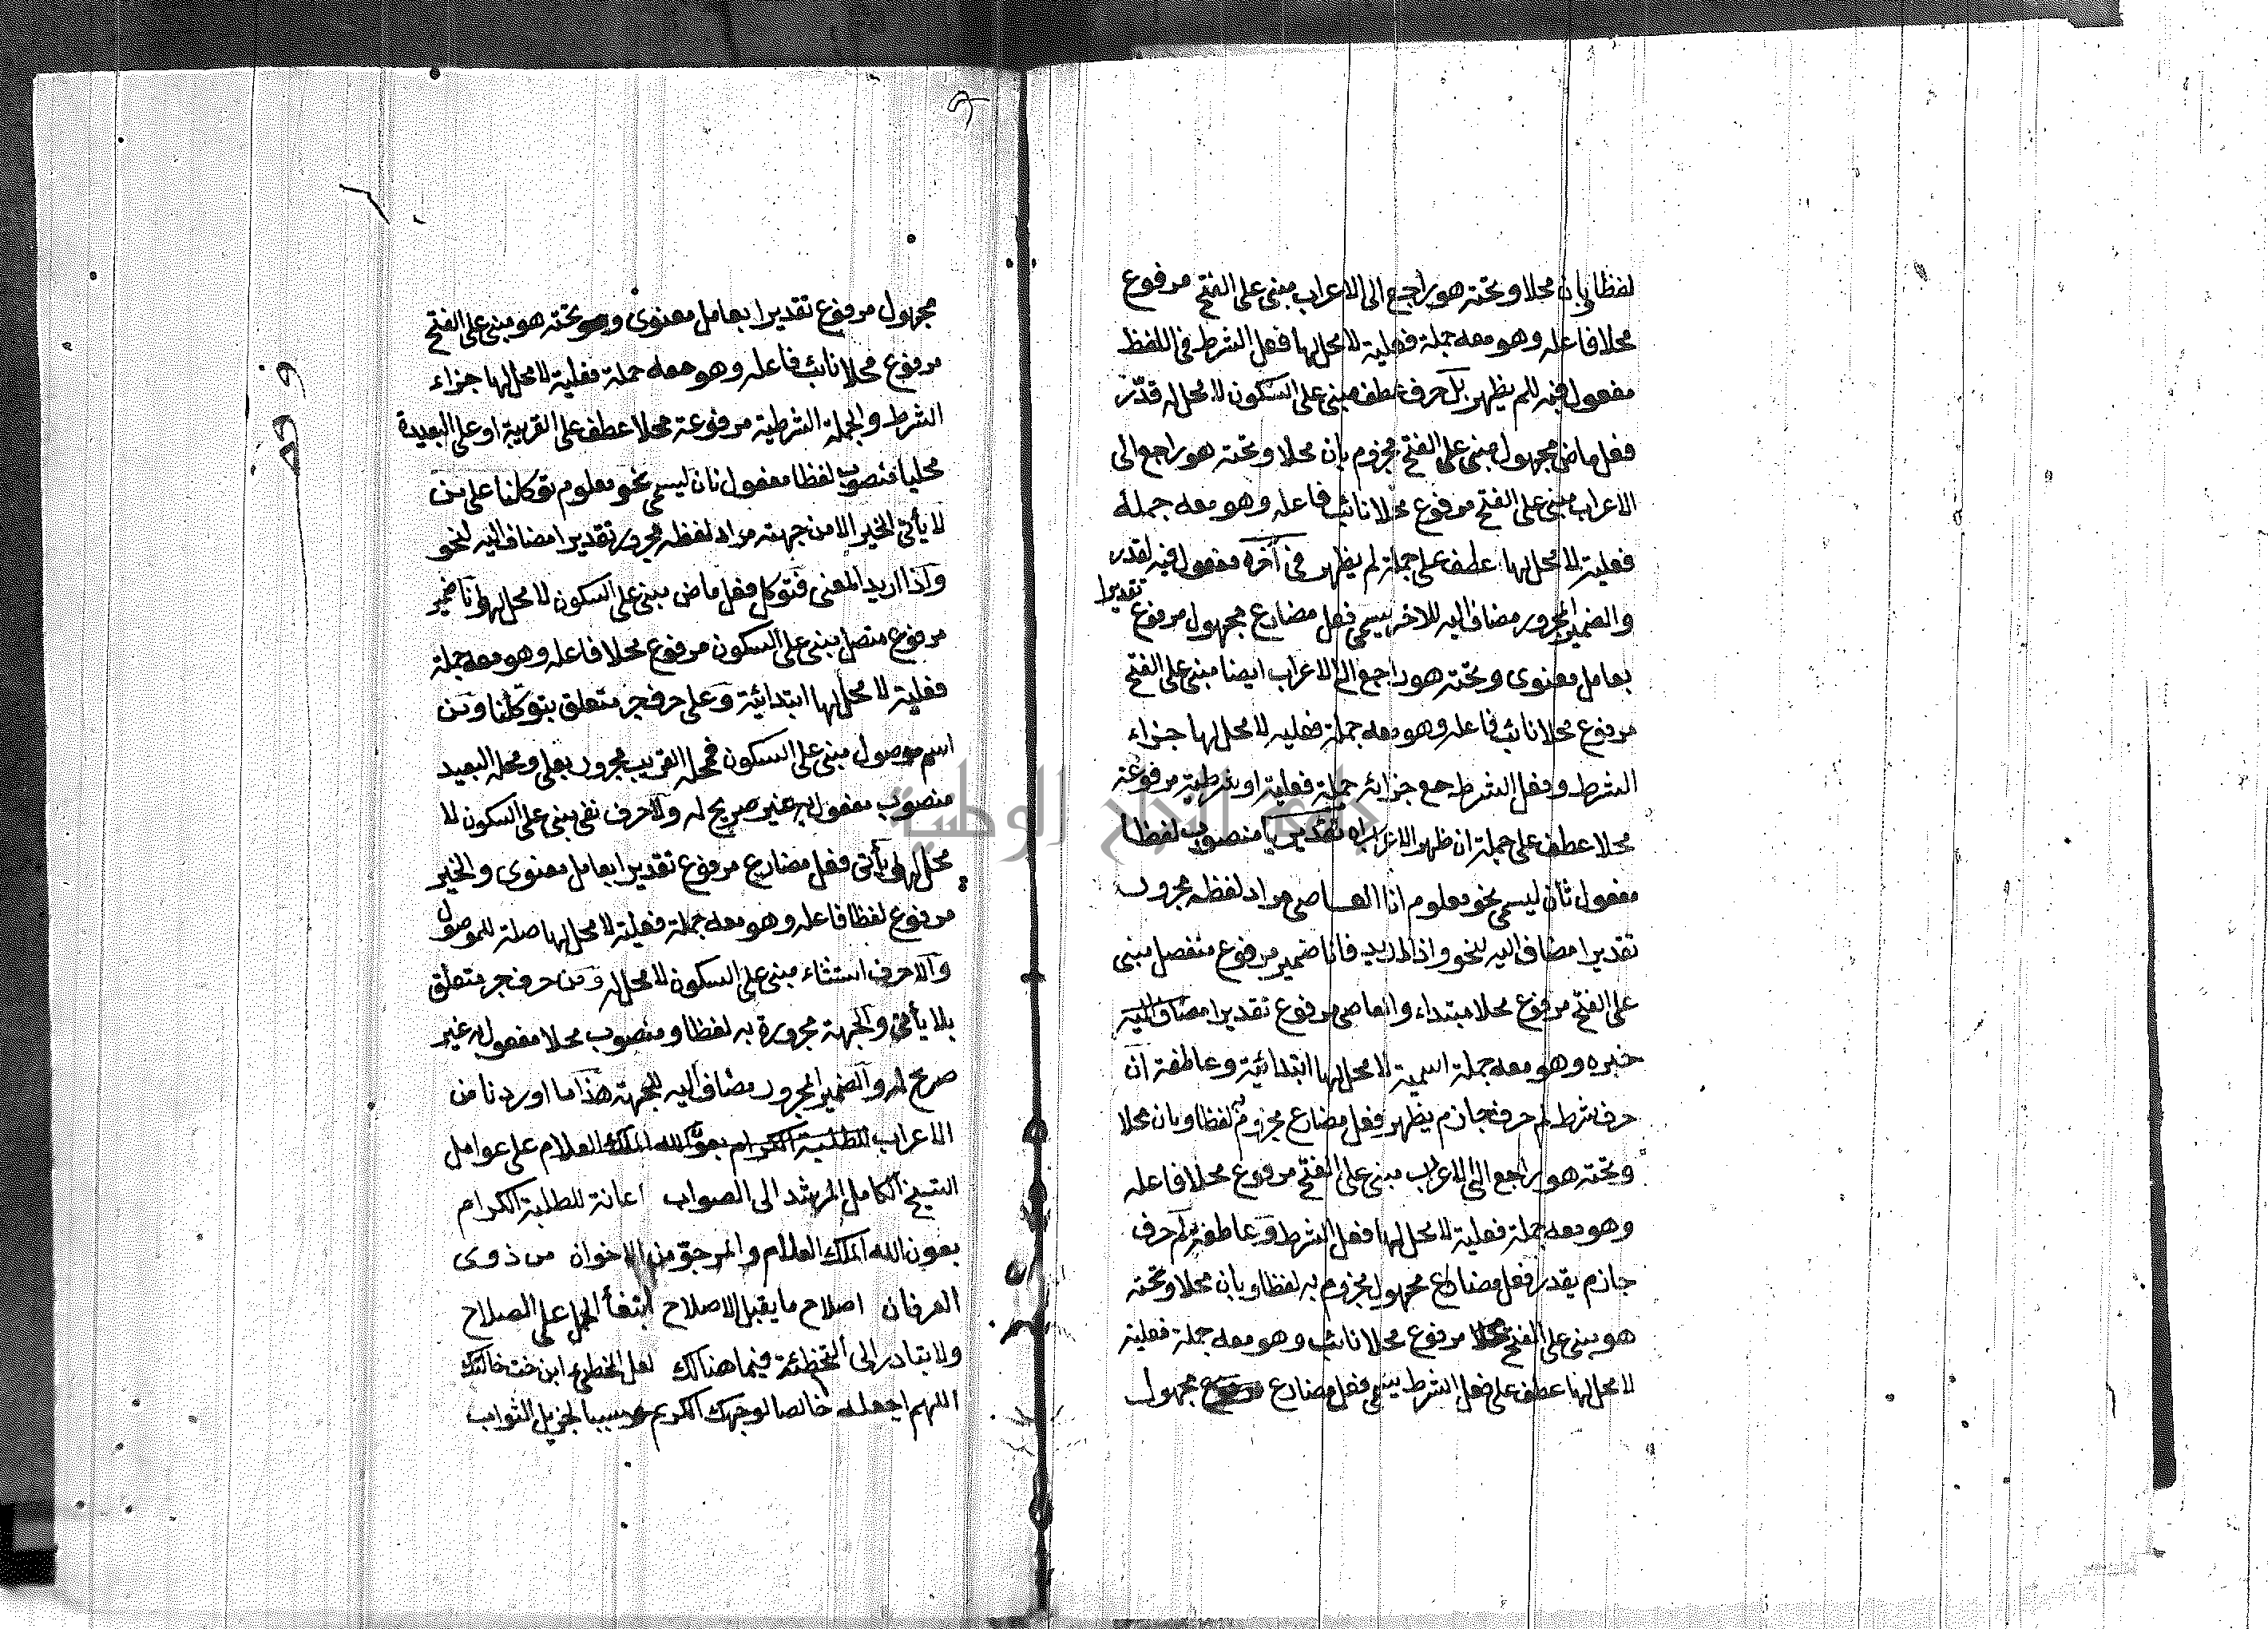 لفظا وبان محلا وتحته هو راجع الى الاعراب مبنى على الفتح مرفوع
محلا فاعله وهو معه جملة فعلية لا محل لها فعل الشرط فى اللفظ
مفعول فيه للم يظهر بل حرف عطف مبنى على السكون لا محل له قدّر
فعل ماض مجهول مبنى على الفتح مجزوم بان محلا وتحته هو راجع الى
الاعراب مبنى على الفتح مرفوع محلا نائب فاعله وهو معه جملة
فعلية لا محل لها عطف على جملة لم يظهر فى آخره مفعول فيه لقدر
والضمير المجرور مضاف اليه للاخر يسمى فعل مضارع مجهول مرفوع تقديرا
بعامل معنوى وتحته هو راجع الى الاعراب ايضا مبنى على الفتح
مرفوع محلا نائب فاعله وهو معه جملة فعليه لا محل لها جزاء
الشرط وفعل الشرط مع جزائه جملة فعلية او شرطية مرفوعة
محلا عطف على جملة ان ظهر الاعراب تقديريا منصوب لفظا
مفعول ثان ليسمى نحو معلوم انا العاصى مراد لفظه مجرور
تقديرا مضاف اليه لنحو واذا اريد فانا ضمير مرفوع منفصل مبنى
على الفتح مرفوع محلا مبتداء والعاصى مرفوع تقديرا مضاف اليه
خبره وهو معه جملة اسمية لا محل لها ابتدائية وعاطفة ان
حرف شرط لم حرف جازم يظهر فعل مضارع مجزوم به لفظا وبان محلا
وتحته هو راجع الى الاعراب مبنى على الفتح مرفوع محلا فاعله
وهو معه جملة فعلية لا محل لها فعل الشرط وعاطفة لم حرف
جازم يقدر فعل مضارع مجهول مجزوم به لفظا وبان محلا وتحته
هو مبنى على الفتح محلا مرفوع محلا نائب وهو معه جملة فعلية
لا محل لها عطف على فعل الشرط يسمى فعل مضارع مجهول
مجهول مرفوع تقديرا بعامل معنوى وتحته هو مبنى على الفتح
مرفوع محلا نائب فاعله وهو معه جملة فعلية لا محل لها جزاء
الشرط والجملة الشرطية مرفوعة محلا عطف على القريبة او على البعيدة
محليا منصوب لفظا مفعول ثان ليسمى نحو معلوم توكلنا على من
لا يأتى الخير الا من جهته مراد لفظه مجرور تقديرا مضاف اليه لنحو
واذا اريد المعنى فتوكل فعل ماض مبنى على السكون لا محل له ونا ضمير
مرفوع متصل مبنى على السكون مرفوع محلا فاعله وهو معه جملة
فعلية لا محل لها ابتدائية وعلى حرف جر متعلق بتوكلنا ومن
اسم موصول مبنى على السكون فمحله القريب مجرور بعلى ومحله البعيد
منصوب مفعول به غير صريح له ولا حرف نفى مبنى على السكون لا
محل له يأتى فعل مضارع مرفوع تقديرا بعامل معنوى والخير
مرفوع لفظا فاعله وهو معه جملة فعلية لا محل لها صلة للموصول
والا حرف استثناء مبنى على السكون لا محل له ومن حرف جر متعلق
بلا يأتى والجهة مجرورة به لفظا ومنصوب محلا مفعول به غير
صريح له والضمير المجرور مضاف اليه للجهة هذا ما اوردنا من
الاعراب للطلبة الكرام بعون الله الملك العلام على عوامل
الشيخ الكامل المرشد الى الصواب اعانة للطلبة الكرام
بعون الله الملك العلام والمرجو من الاخوان من ذوى
العرفان اصلاح ما يقبل الاصلاح الحمل على الصلاح
ولا يتبادر الى التخطئة فيما هنالك لعل المخطئ ابن خت خالتك
اللهم اجعله خالصا لوجهك الكريم وسببا لجزيل الثواب
وقف
جامعة النجاح الوطنية